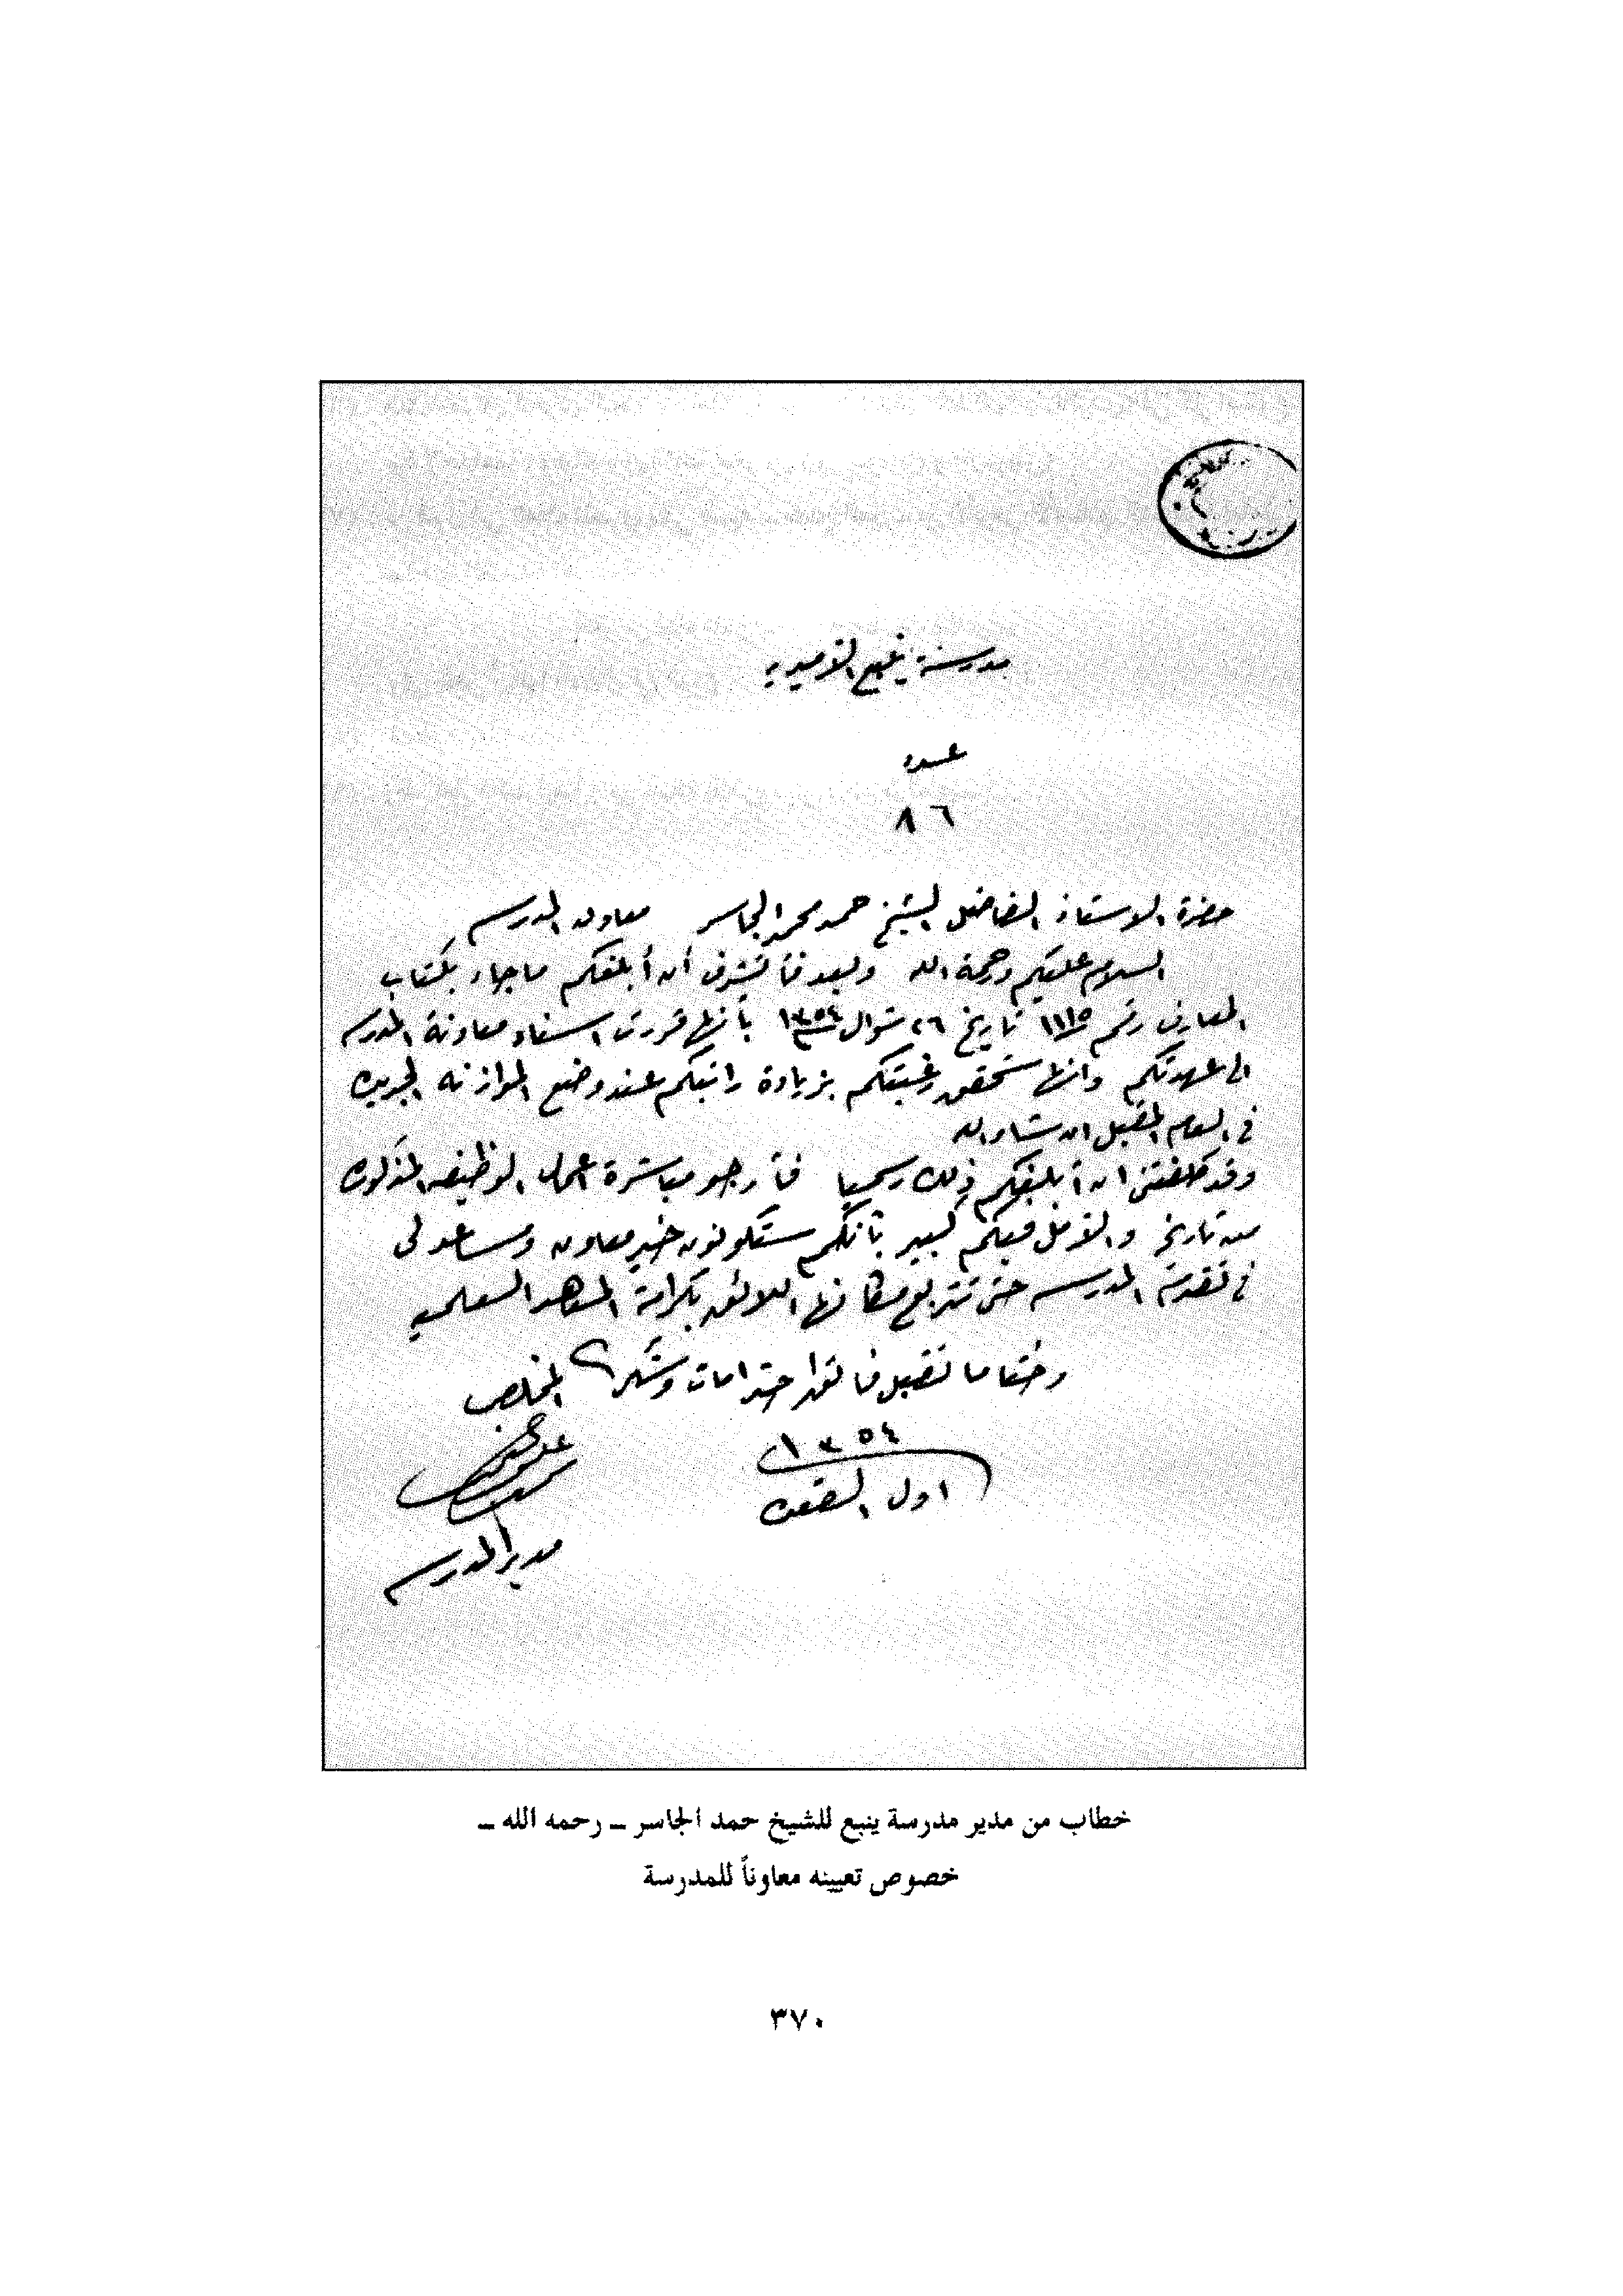 مدرسة ينبع الأميريه
عدد
٨٦
حضرة الاستاذ الفاضل الشيخ حمد محمد الجاسر معاون المدرسه
السلام عليكم ورحمة الله وبعد فأتشرف أن أبلغكم ما جاء بكتاب
المعارف رقم ١١١٥ تاريخ ٢٦ شوال ١٣٥٤ بأنها قررت اسناد معاونة المدرسه
الى عهدتكم وانها ستحقق رغبتكم بزيادة راتبكم عند وضع الموازنه الجديده
في العام المقبل ان شاء الله
وقد كلفتني ان أبلغكم ذلك رسميا فأرجو مباشرة عمل الوظيفه المذكوره
من تاريخ والأمل فيكم كبير بأنكم ستكونون خير معاون ومساعد لي
في تقدم المدرسه حتى تتربع مكانها اللائق بكرامة المعاهد العلميه
وختاما تقبل فائق احترامات وشكر المخلص
١٣٥٤
اول القعده
مدير المدرسه
خطاب من مدير مدرسة ينبع للشيخ حمد الجاسر ـ رحمه الله ـ
خصوص تعيينه معاوناً للمدرسة
٣٧٠